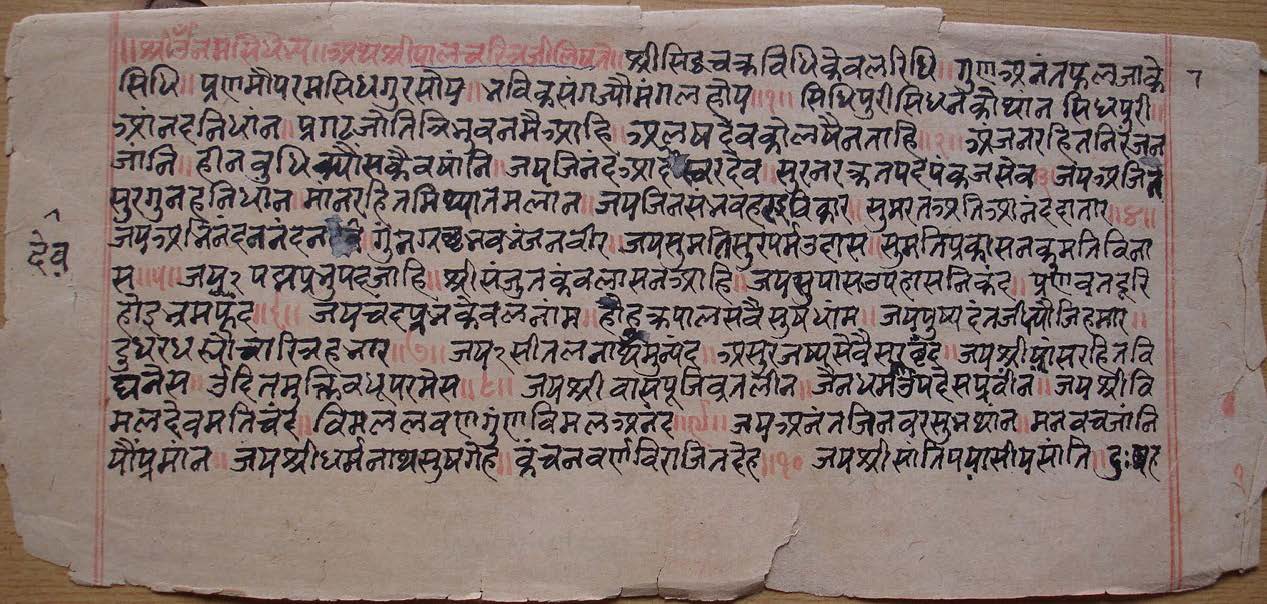 ॥श्रीॐनमसिधेभ्य॥अथश्रीपालचरित्रजीलिषते॥ श्रीसिद्धचक्रविधिकेवलरिधि॥ गुणअनंतफलजाके
सिधि॥ प्रणमौपरमसिधगुरसोय॥ भविकसंगज्यौमंगलहोय॥१॥ सिधिपुरीसिधनकोथान सिधपुरी॥
आंनदनिधांन॥ प्रगटजौतित्रिभुवनमैआहि॥ अलषदेवकोलषैनताहि॥२॥ अजनरहितनिरंजन
जांनि॥हीनबुधिक्यौंसकैवषांनि॥ जयजिनंदआदीस्वरदेव॥ सुरनरक्रतपदपंकजसेव॥३॥ जयअजित
सुरगुनहनिधांन॥ मानरहितमिथ्यातमलान॥ जयजिनसभवहरइविकार॥ सुमरतअतिआनददातार॥४॥
जयअभिनंदननंदन गुंन भवभंजनवीर॥ जयसुमतिसुरपर्मउदास॥ सुमतिप्रकासनकुमतिविना
स॥५॥ जय२पद्मप्रभुपदजाहि॥ श्रीसंजुतकंवलासनआहि॥ जयसुपास निकंद॥ दूरि
होइभ्रमफंद॥६॥ जयचंदप्रभकेवलनांम॥ होइक्रपालसवैसुषधांम॥ जयपुष्पदंत जिहमार॥
दुधर चारित्रहभार॥७॥ जय२सीतलनाथमुन्यंद॥ असुरजष्यसेवैसुरवंद॥ जयश्रीयांसरहितवि
घनेस॥ मुक्तिवधूपरमेस॥८॥ जयश्रीवासपूजिव्रतलीन॥ जैनधर्मउपदेसप्रवीन॥ जयश्रीवि
मलदेवमतिचंद॥ विमललवणगुंणविमलअनंद॥९॥ जयअनंतजिनवरसुभथान॥ मनवचजांनि
यौंप्रमांन॥ जयश्रीधर्मनाथसुषगेह॥ कंचनवर्णविराजितदेह॥१०॥ जयश्रीसांति सांति॥ दुःषह
देव
१